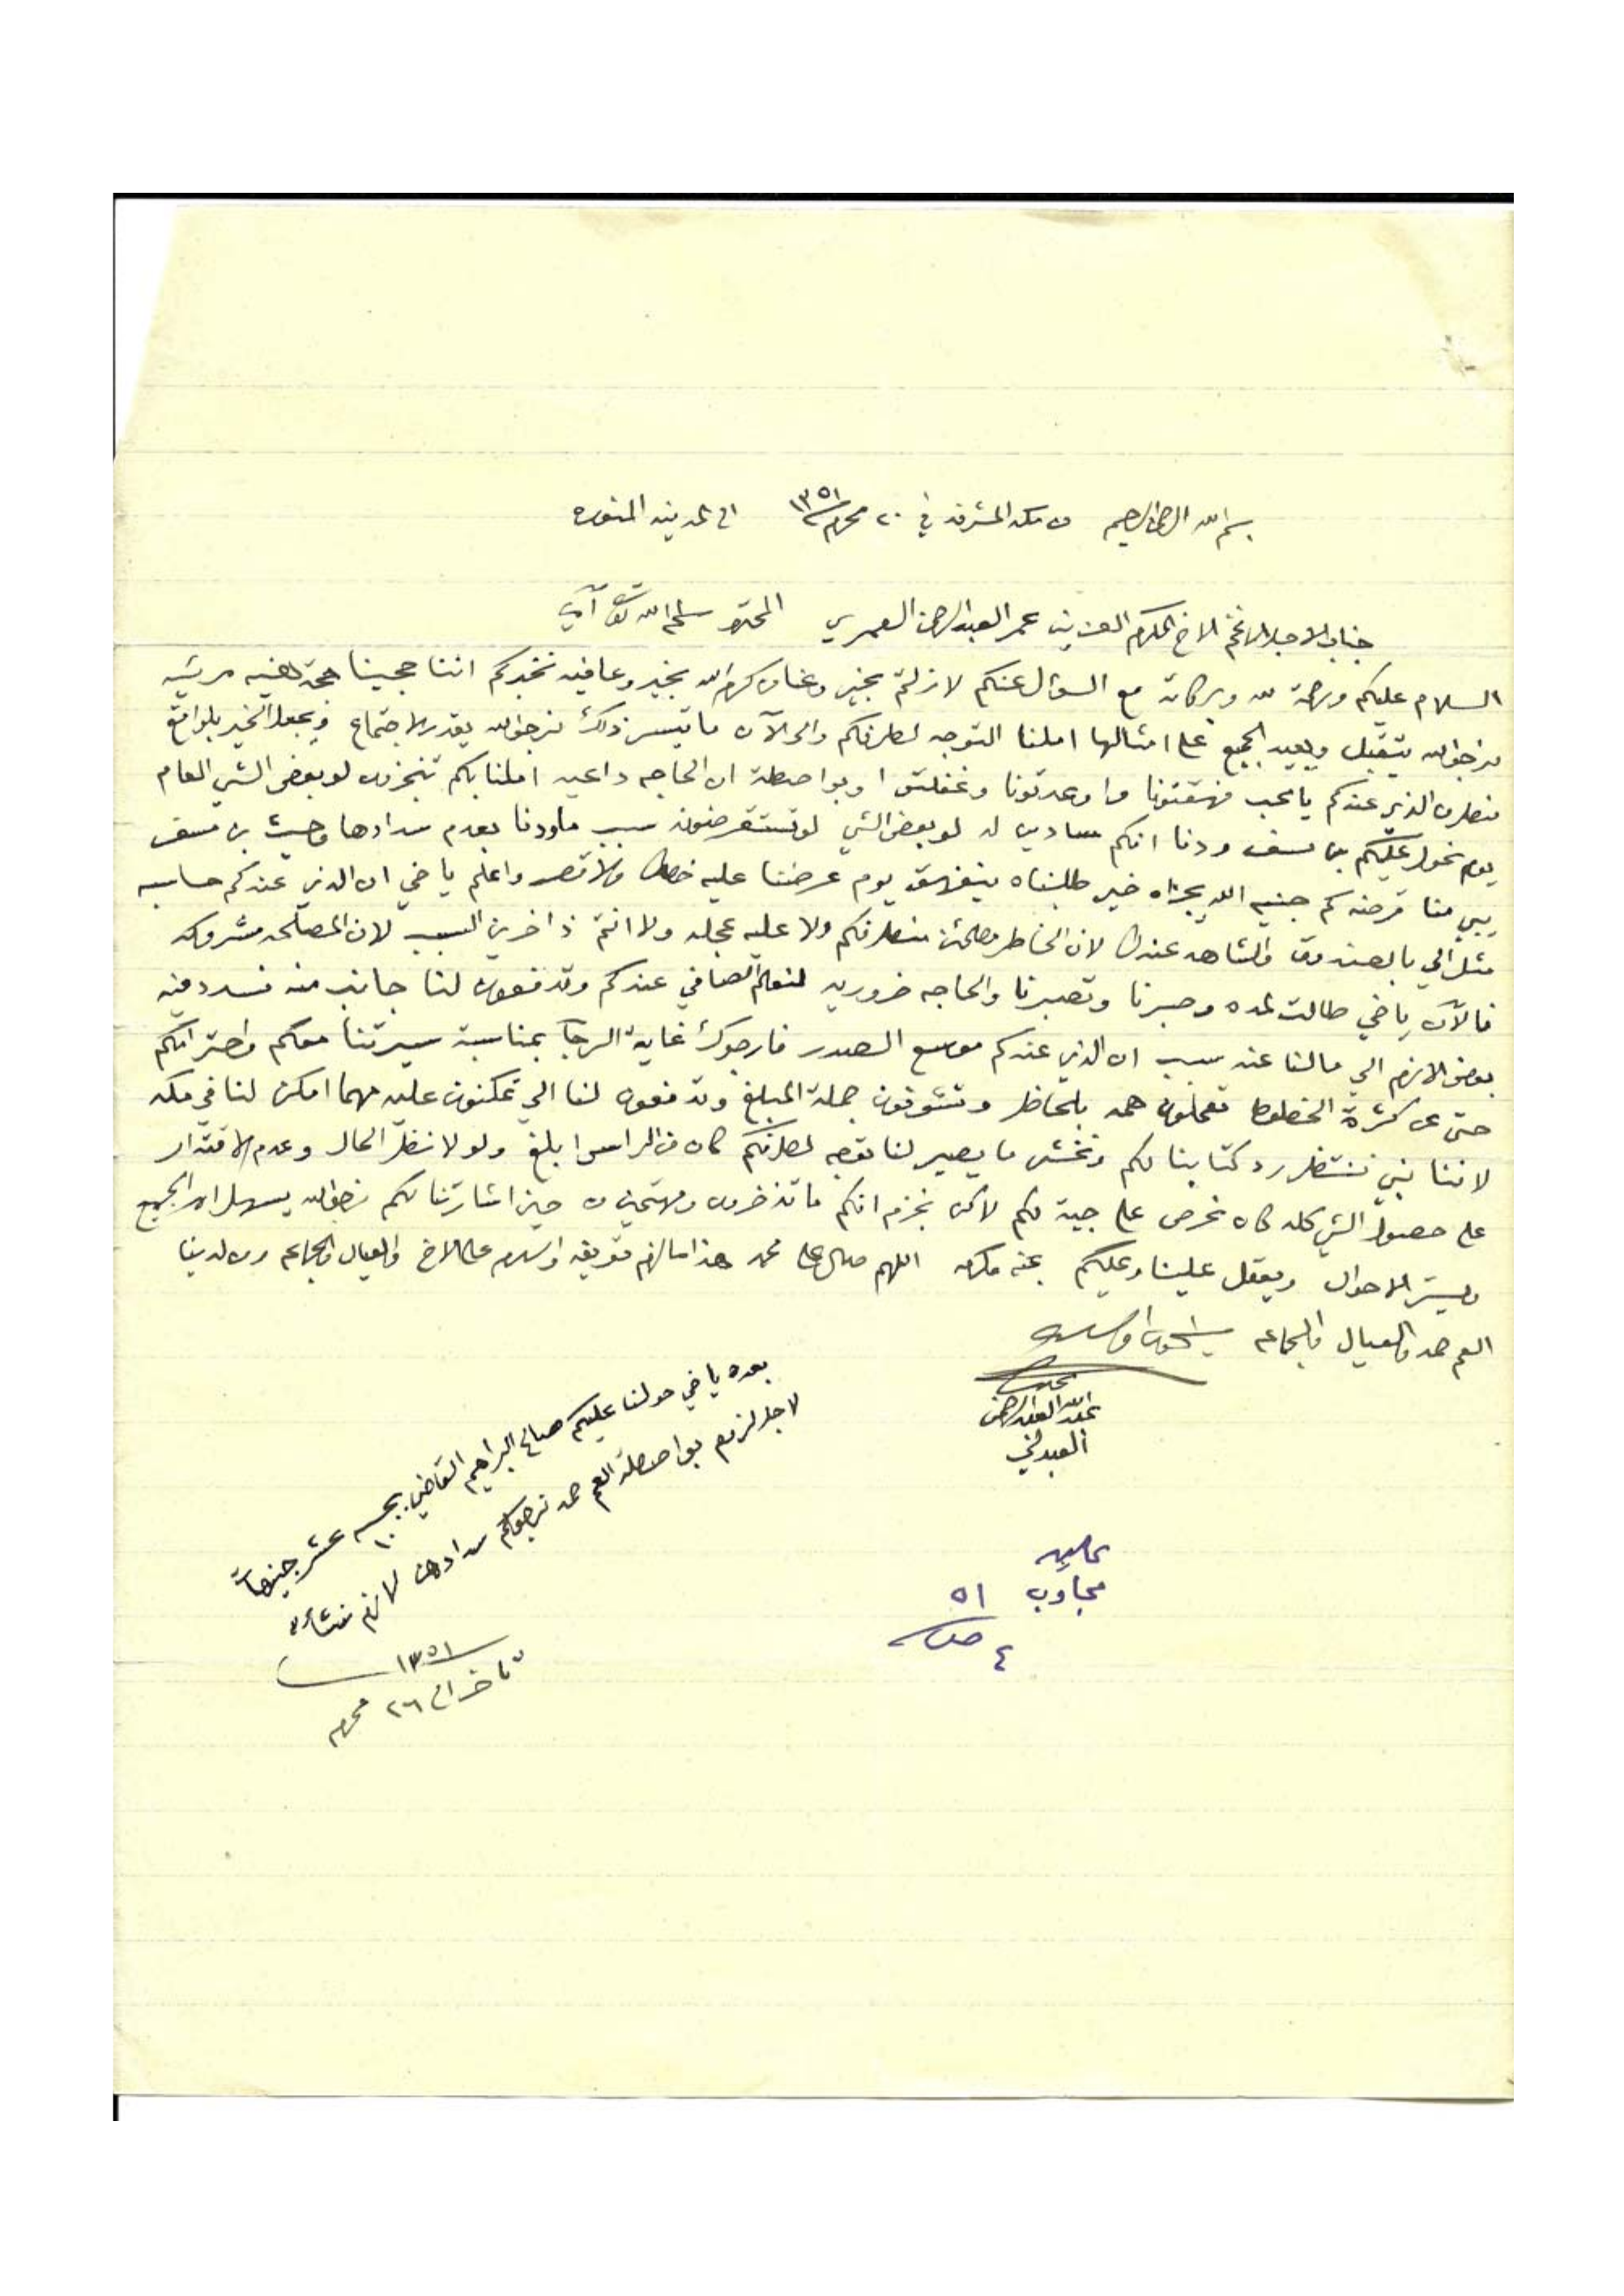 بسم الله الرحمن الرحيم من مكه المشرفه في ٢٠ محرم ١٣٥١ الى المدينه المنوره
جناب الاجل الافخم الاخ المكرم العزيز عمر العبدالرحمن العمري المحترم سلمه الله تعالى آمين
السلام عليكم ورحمة الله وبركاته مع السؤال عنكم لازلتم بخير وعنا من كرم الله بخير وعافيه نخبركم اننا حجينا حجة هنيه مريئه
نرجو الله يتقبل ويعيد الجميع على امثالها املنا التوجه لطرفكم والى الآن ما تيسر ذلك نرجو الله يقدر الاجتماع ويجعل الخير بالواقع
منطرف الذي عندكم يا محب وغفلتوا وبواصطة ان الحاجه داعيه املنا بكم تنجزون لو بعض الشي العام
يوم نحول عليكم بن مسفر ودنا انكم سادين له لو بعض الشي لو تستقرضونه سبب ماودنا بعدم سدادها وحيث بن مسفر
يبي منا قرضه كم جنيه الله يجزاه خير طلبناه يوم عرضنا عليه واعلم ياخي ان الذي عندكم حاسبه
مثل الي بالصندوق والشاهد عندك لان الخاطر مطمئن منطرفكم ولا عليه عجله ولا انتم السبب لان المصلحه مشروكه
فالآن ياخي طالت المده وصبرنا وتصبرنا والحاجه ضروريه الصافي عندكم وتدفعون لنا جانب منه نسدد فيه
بعض الازم الي مالنا عنه سبب ان الذي عندكم موسع الصدر فارجوك غاية الرجا بمناسبة سيرتنا معكم واحترامكم
حتى عن كثرة الخطوط تعملون همه بالحاظر وتشوفون جملة المبلغ وتدفعون لنا الي تمكنون عليه مهما امكن لنا في مكه
لاننا نبي ننتظر رد كتابنا لكم ونخشى ما يصير لنا توجه لطرفكم كان ابلغ ولولا نظر الحال وعدم الاقتدار
على حصول الشي كله كان نحرص على جية لكم لاكن نجزم انكم ما تذخرون من حين اشارتنا لكم نرجو الله يسهل امر الجميع
وييسر الاحوال علينا وعليكم بمنه وكرمه اللهم صل على محمد هذا مالزم تعريفه والسلام على الاخ والعيال والجماعه ومن لدينا
العم حمد والعيال والجماعه والسلام
محبكم
عبدالله العبدالرحمن
العبدلي
بعده ياخي حولنا عليكم صالح البراهيم القاضي بخمسه عشر جنيهاً
١٠
لاجل لزوم بواصطة العم حمد نرجوكم سدادهن لازم
١٣٥١
تاخر الى ٢٦ محرم
مجاوب ٥١
٤ صفر